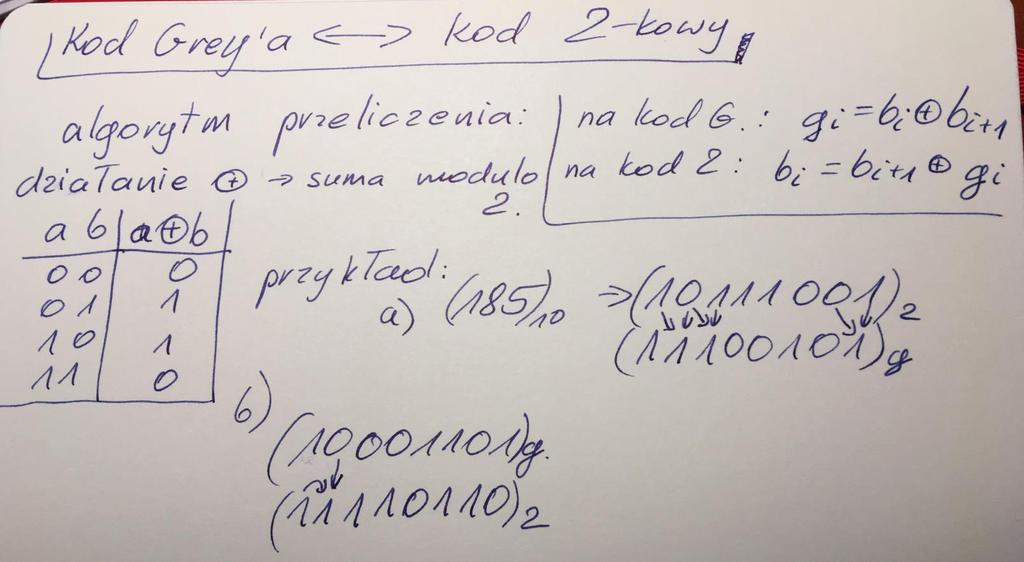 Kod Grey'a <—> kod 2-kowy
algorytm przeliczenia:
działanie ⊕ → suma modulo 2.
na kod G.: gi = bi ⊕ bi+1
na kod 2: bi = bi+1 ⊕ gi
a b | a⊕b
0 0 | 0
0 1 | 1
1 0 | 1
1 1 | 0
przykład:
a) (185)10 ⇒ (10111001)2
(11100101)g
b)
(10001101)g.
(11110110)2